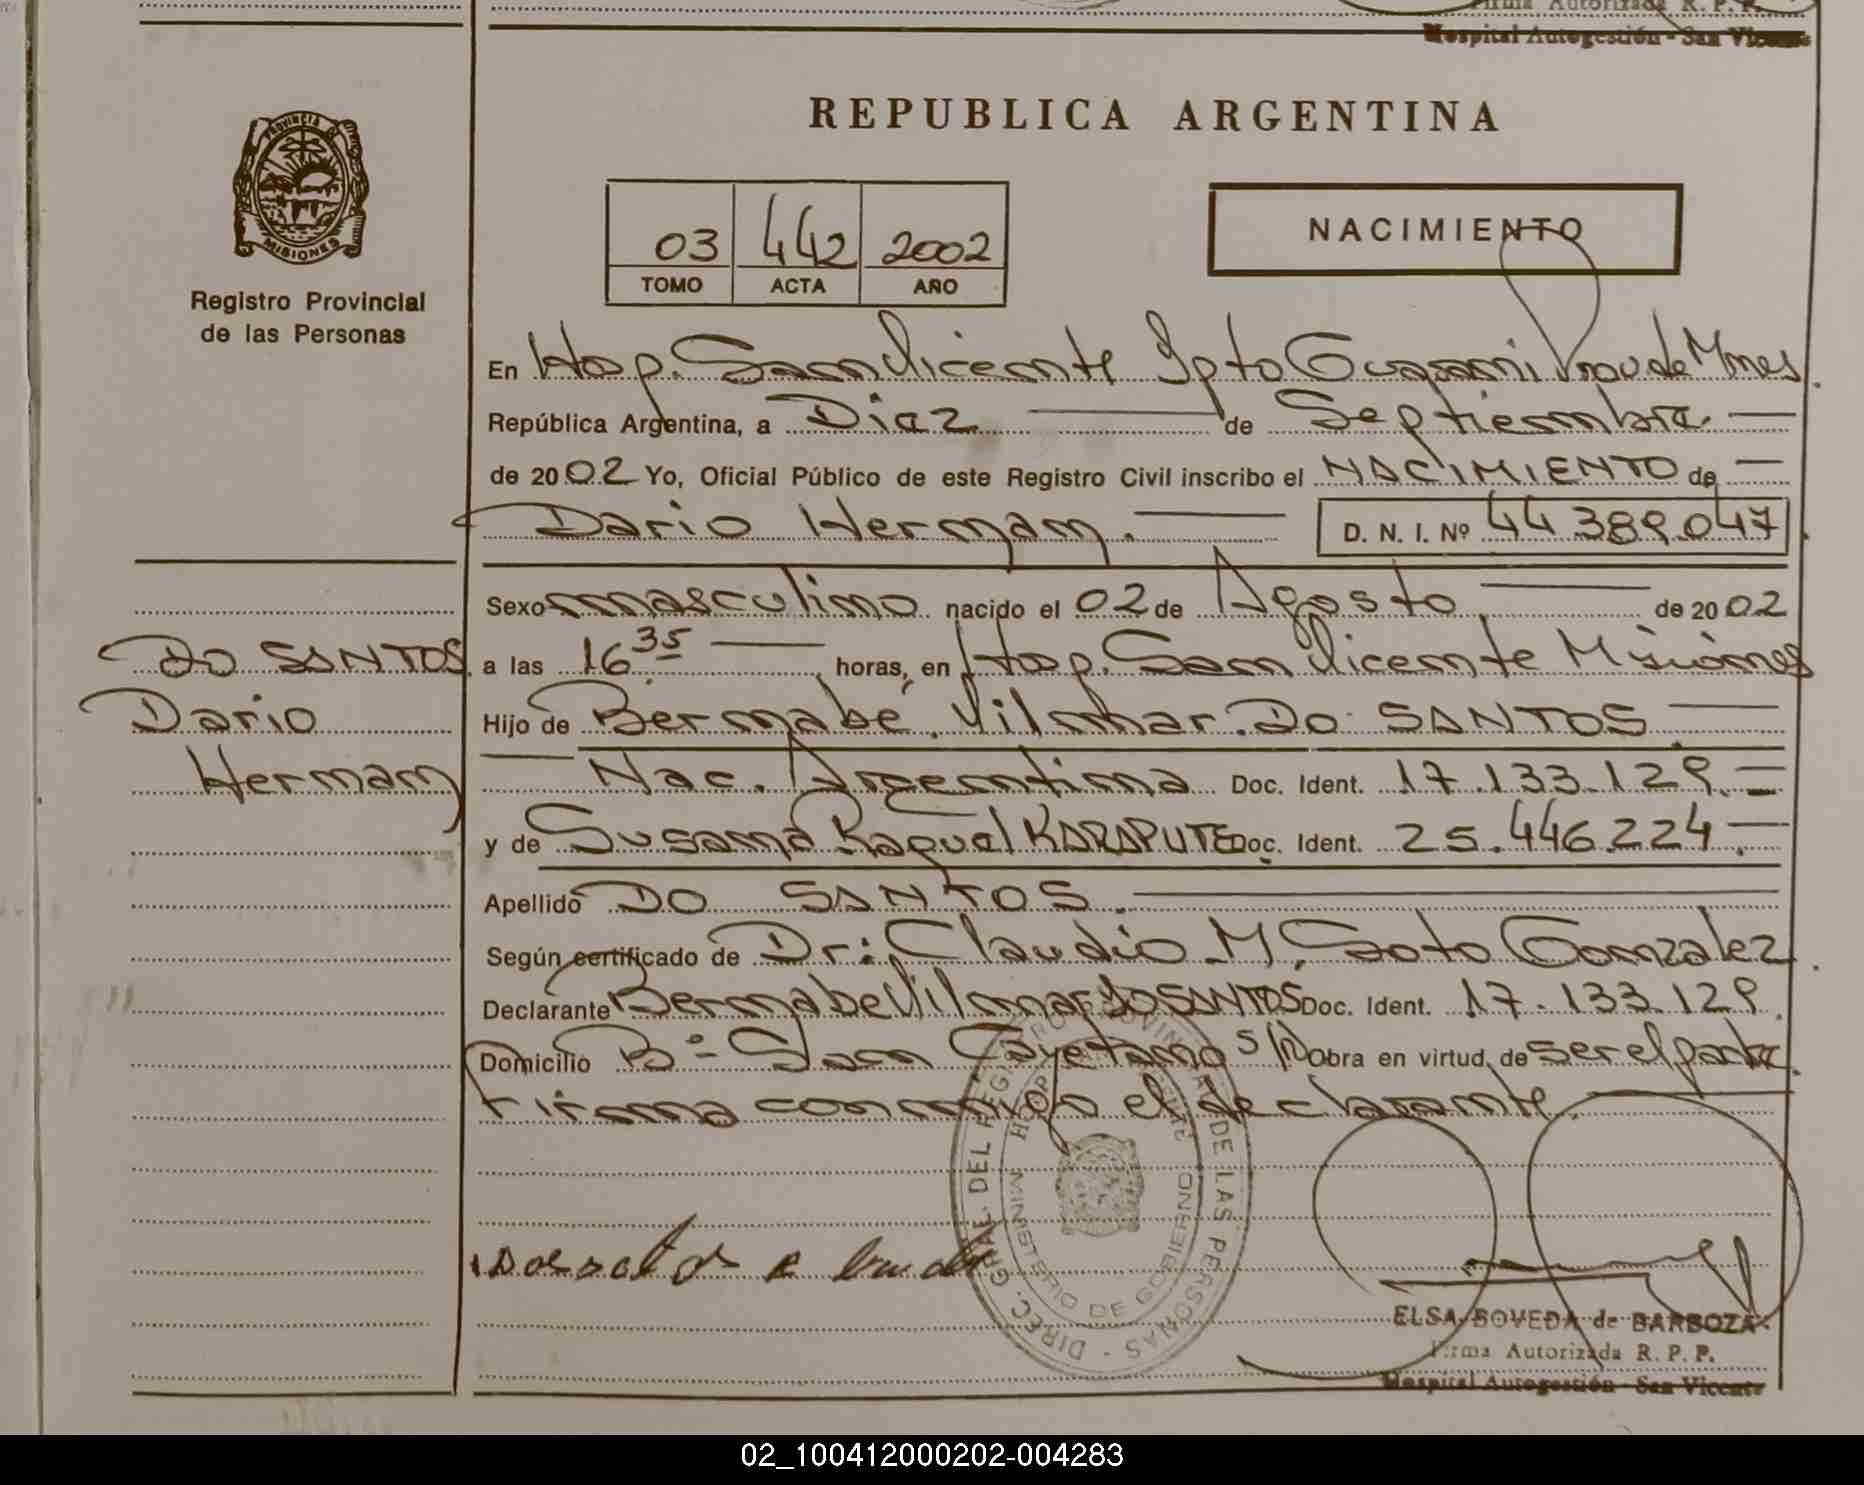 Firma Autorizada R. P. P.
Hospital Autogestión - San Vicente
REPUBLICA ARGENTINA
PROVINCIA DE
MISIONES
Registro Provincial
de las Personas
03 442 2002
TOMO ACTA AÑO
NACIMIENTO
En Hosp. San Vicente Dpto Guarani Prov de Mnes
República Argentina, a Diez de Septiembre
de 2002 Yo, Oficial Público de este Registro Civil inscribo el NACIMIENTO de
Dario Hernan. D. N. I. Nº 44389.047
Sexo masculino nacido el 02 de Agosto de 2002
a las 16 35 horas, en Hosp. San Vicente Misiones
Hijo de Bernabé Vilmar Do SANTOS
Nac. Argentina Doc. Ident. 17.133.129
y de Susana Raquel KARAPUTE Doc. Ident. 25.446.224
Apellido DO SANTOS
Según certificado de Dr: Claudio M. Soto Gonzalez
Declarante Bernabe Vilmar DO SANTOS Doc. Ident. 17.133.129
Domicilio Bº San Cayetano S/N Obra en virtud de ser el padre
Firma conmigo el declarante.
DO SANTOS
Dario
Hernan
DIREC. GRAL. DEL REGISTRO PROVINCIAL DE LAS PERSONAS
MINISTERIO DE GOBIERNO
ELSA BOVEDA de BARBOZA
Firma Autorizada R. P. P.
Hospital Autogestión - San Vicente
02_100412000202-004283